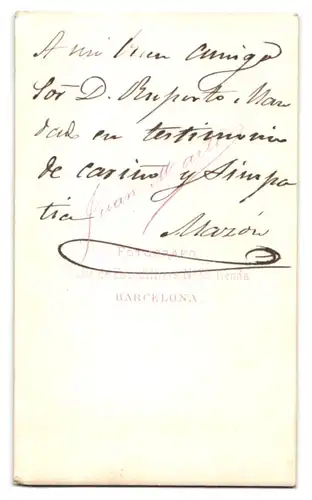 A mi buen amigo
Sor D. Ruperto Man
dado en testimonio
de cariño y Simpa
tia
Juan
Mazón
FOTOGRAFO
Tienda
BARCELONA